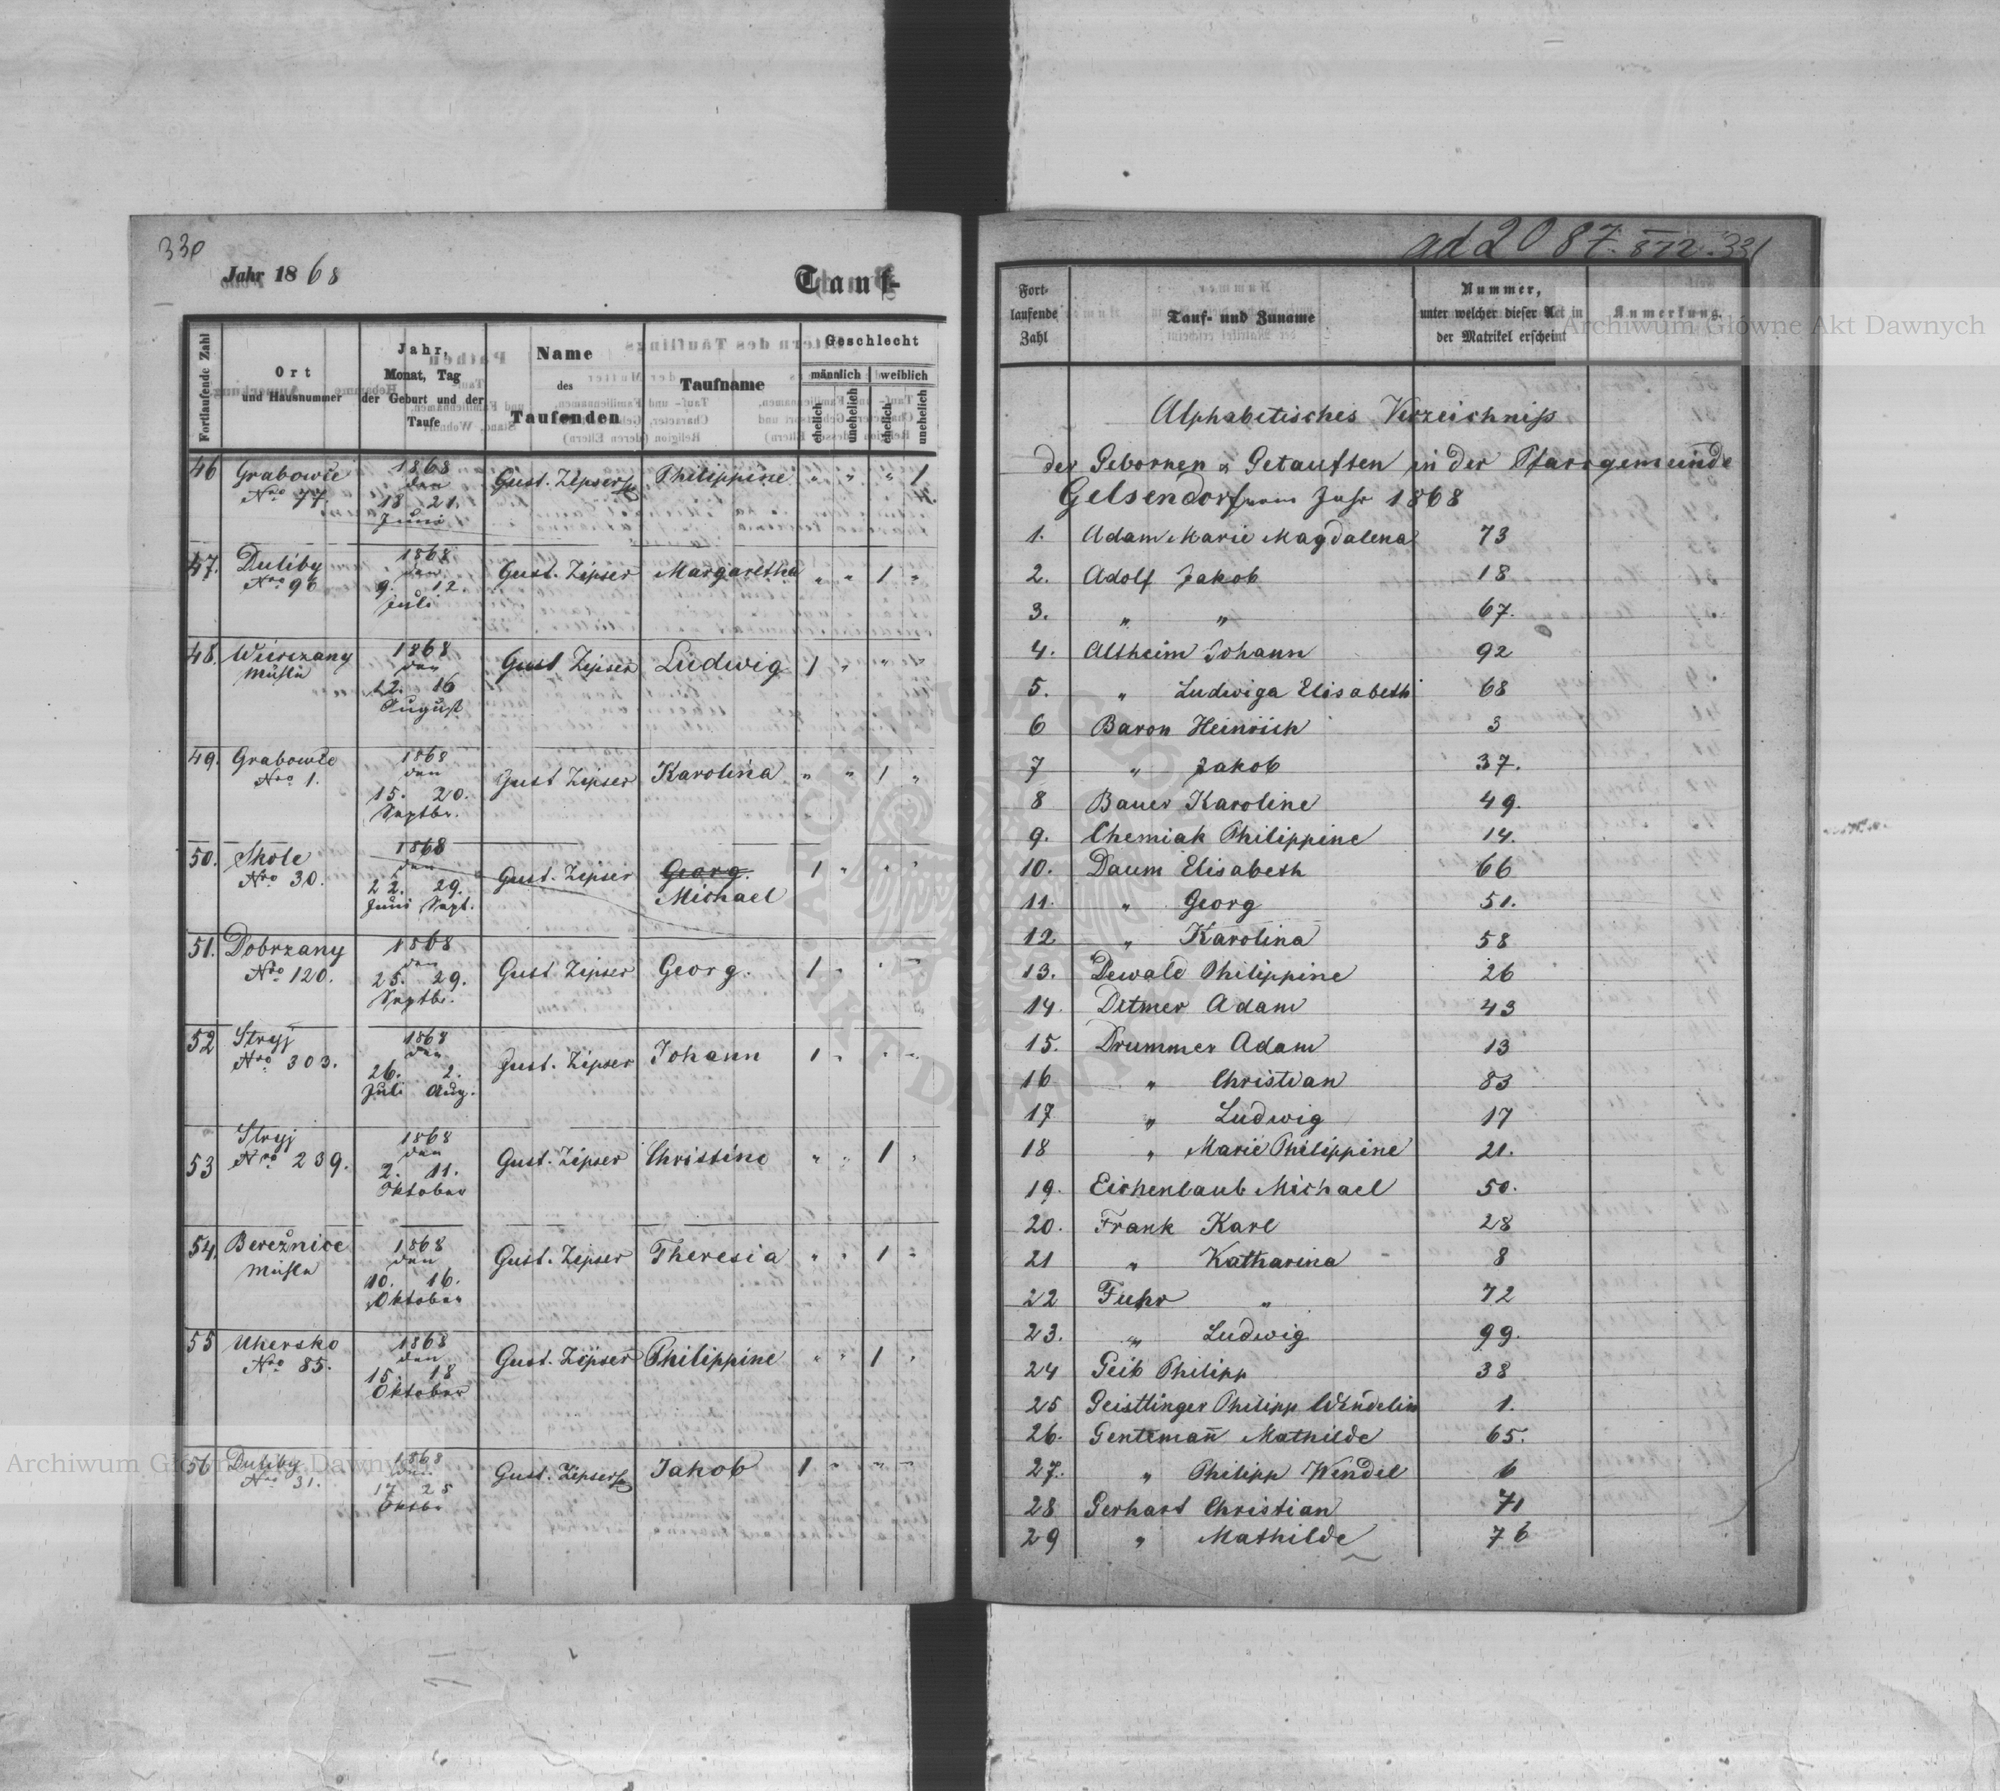 330
Jahr 1868
Tauf-
Fortlaufende Zahl
Ort
und Hausnummer
Jahr,
Monat, Tag
der Geburt und der
Taufe
Name
des
Taufenden
Taufname
Geschlecht
männlich weiblich
ehelich unehelich ehelich unehelich
46 Grabowce 1868 Gust. Zipser Philippine " " " 1
Nro 77. den
18 21.
Juni
47. Duliby 1868 Gust. Zipser Margaretha " " 1 "
Nro 96 den
9. 12.
Juli
48. Wierczany 1868 Gust Zipser Ludwig 1 " " "
Mühle den
12. 16
August
49. Grabowce 1868 Gust Zipser Karolina " " 1 "
Nro 1. den
15. 20.
Septbr.
50. Skole 1868 Gust. Zipser Georg.
Nro 30. den Michael 1 " " "
22. 29.
Juni Sept.
51. Dobrzany 1868 Gust. Zipser Georg. 1 " " "
Nro 120. den
25. 29.
Septbr.
52 Stryj 1868 Gust. Zipser Johann 1 " " "
Nro 303. den
26. 2.
Juli Aug.
53 Stryj 1868 Gust. Zipser Christine " " 1 "
Nro 239. den
2. 11.
Oktober
54. Berežnice 1868 Gust. Zipser Theresia " " 1 "
Mühle den
10. 16.
Oktober
55 Uhersko 1868 Gust. Zipser Philippine " " 1 "
Nro 85. den
15. 18
Oktober
56 Duliby 1868 Gust. Zipser Jakob 1 " " "
Nro 31. den
17 25
Oktbr
ad 2087. 872. 331
Fort-
laufende
Zahl
Tauf- und Zuname
Nummer,
unter welcher dieser Act in
der Matrikel erscheint
Anmerkung.
Alphabetisches Verzeichniss
der Gebornen & Getauften in der Pfarrgemeinde
Gelsendorf vom Jahr 1868
1. Adam Marie Magdalena 73
2. Adolf Jakob 18
3. " " 67.
4. Altheim Johann 92
5. " Ludwiga Elisabeth 68
6 Baron Heinrich 3
7 " Jakob 37.
8 Bauer Karoline 49.
9. Chemiak Philippine 14.
10. Daum Elisabeth 66
11. " Georg 51.
12 " Karolina 58
13. Dewald Philippine 26
14. Ditmer Adam 43
15. Drummer Adam 13
16 " Christian 83
17 " Ludwig 17
18 " Marie Philippine 21.
19. Eichenlaub Michael 50.
20. Frank Karl 28
21 " Katharina 8
22 Fuhr " 72
23. " Ludwig 99.
24 Geib Philipp 38
25 Geistlinger Philipp Wendelin 1.
26. Gentemañ Mathilde 65.
27. " Philipp Wendel 6
28 Gerhart Christian 71
29 " Mathilde 76
Archiwum Główne Akt Dawnych
Archiwum Główne Akt Dawnych
ARCHIWUM GŁÓWNE AKT DAWNYCH